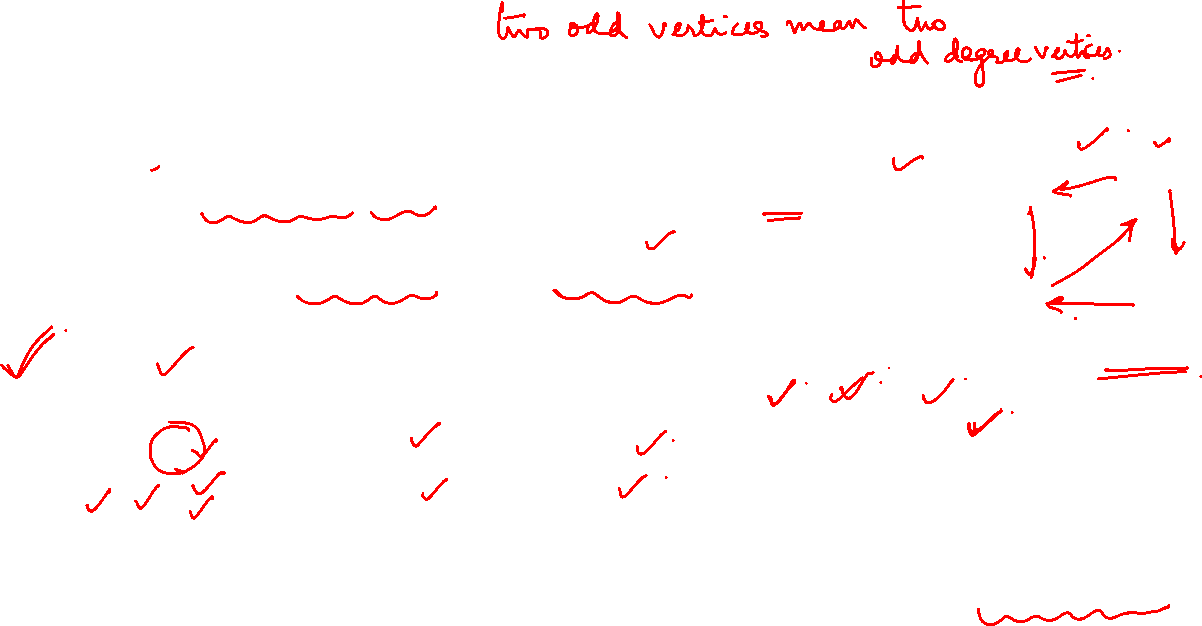 two odd vertices mean two
odd degree vertices.